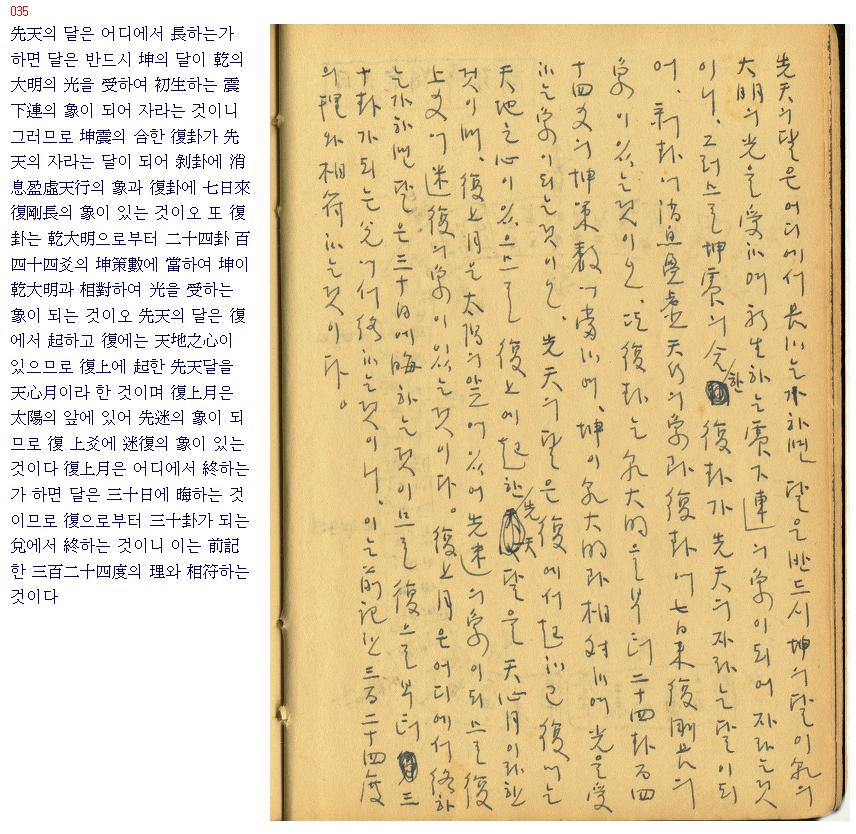 035
先天의 달은 어디에서 長하는가
하면 달은 반드시 坤의 달이 乾의
大明의 光을 受하여 初生하는 震
下連의 象이 되어 자라는 것이니
그러므로 坤震의 合한 復卦가 先
天의 자라는 달이 되어 剝卦에 消
息盈虛天行의 象과 復卦에 七日來
復剛長의 象이 있는 것이오 또 復
卦는 乾大明으로부터 二十四卦 百
四十四爻의 坤策數에 當하여 坤이
乾大明과 相對하여 光을 受하는
象이 되는 것이오 先天의 달은 復
에서 起하고 復에는 天地之心이
있으므로 復上에 起한 先天달을
天心月이라 한 것이며 復上月은
太陽의 앞에 있어 先迷의 象이 되
므로 復 上爻에 迷復의 象이 있는
것이다 復上月은 어디에서 終하는
가 하면 달은 三十日에 晦하는 것
이므로 復으로부터 三十卦가 되는
兌에서 終하는 것이니 이는 前記
한 三百二十四度의 理와 相符하는
것이다
先天의 달은 어디에서 長하는가 하면 달은 반드시 坤의 달이 乾의
大明의 光을 受하여 初生하는 震下連의 象이 되어 자라는 것
이니, 그러므로 坤震의 合한 復卦가 先天의 자라는 달이 되
어, 剝卦에 消息盈虛天行의 象과 復卦에 七日來復剛長의
象이 있는 것이오, 또 復卦는 乾大明으로부터 二十四卦 百四
十四爻의 坤策數에 當하여, 坤이 乾大明과 相對하여 光을 受
하는 象이 되는 것이오, 先天의 달은 復에서 起하고 復에는
天地之心이 있으므로 復上에 起한 先天달을 天心月이라 한
것이며, 復上月은 太陽의 앞에 있어 先迷의 象이 되므로 復
上爻에 迷復의 象이 있는 것이다。 復上月은 어디에서 終하
는가 하면 달은 三十日에 晦하는 것이므로 復으로부터 三
十卦가 되는 兌에서 終하는 것이니, 이는 前記한 三百二十四度
의 理와 相符하는 것이다。